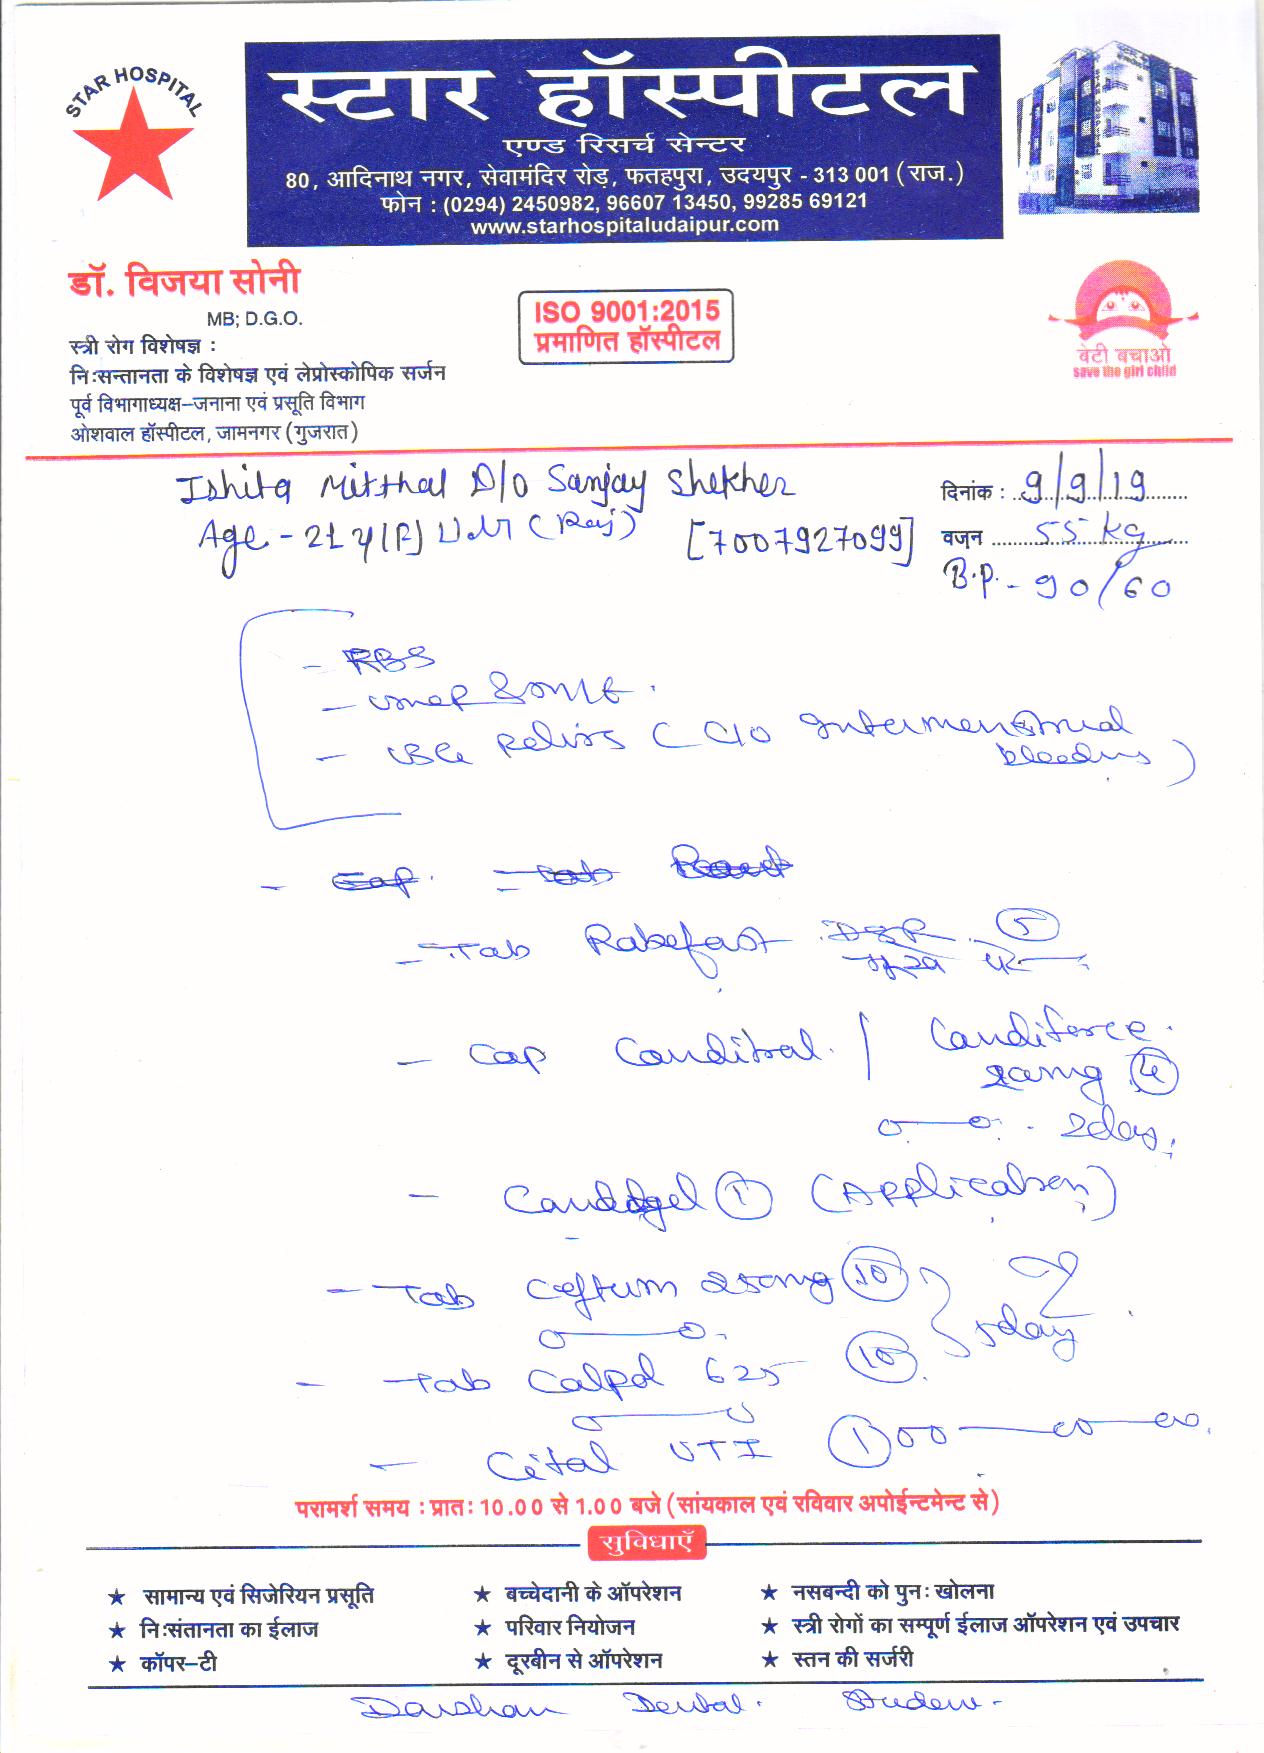 STAR HOSPITAL
स्टार हॉस्पीटल
एण्ड रिसर्च सेन्टर
80, आदिनाथ नगर, सेवामंदिर रोड़, फतहपुरा, उदयपुर - 313 001 (राज.)
फोन : (0294) 2450982, 96607 13450, 99285 69121
www.starhospitaludaipur.com
डॉ. विजया सोनी
MB; D.G.O.
स्त्री रोग विशेषज्ञ :
निःसन्तानता के विशेषज्ञ एवं लेप्रोस्कोपिक सर्जन
पूर्व विभागाध्यक्ष-जनाना एवं प्रसूति विभाग
ओशवाल हॉस्पीटल, जामनगर (गुजरात)
ISO 9001:2015
प्रमाणित हॉस्पीटल
बेटी बचाओ
save the girl child
Ishita Mitthal D/o Sanjay Shekher
दिनांक : 9/9/19
Age - 21 y (Raj) [7007927099]
वजन 55 kg
B.P. - 90/60
- RBS
-
- USG Pelvis ( C/o Intermenstrual
bleeding )
- Cap. - Tab
- Tab Rabefast DSR 5
- Cap Canditral / Candiforce
4
2day
- Candidgel 1 (Application)
- Tab Ceftum 250mg 10
5day
- Tab Calpol 625 10
- Cital UTI 1
परामर्श समय : प्रातः 10.00 से 1.00 बजे (सांयकाल एवं रविवार अपोईन्टमेन्ट से)
सुविधाएँ
★ सामान्य एवं सिजेरियन प्रसूति
★ बच्चेदानी के ऑपरेशन
★ नसबन्दी को पुनः खोलना
★ निःसंतानता का ईलाज
★ परिवार नियोजन
★ स्त्री रोगों का सम्पूर्ण ईलाज ऑपरेशन एवं उपचार
★ कॉपर-टी
★ दूरबीन से ऑपरेशन
★ स्तन की सर्जरी
Darshan Dental Student